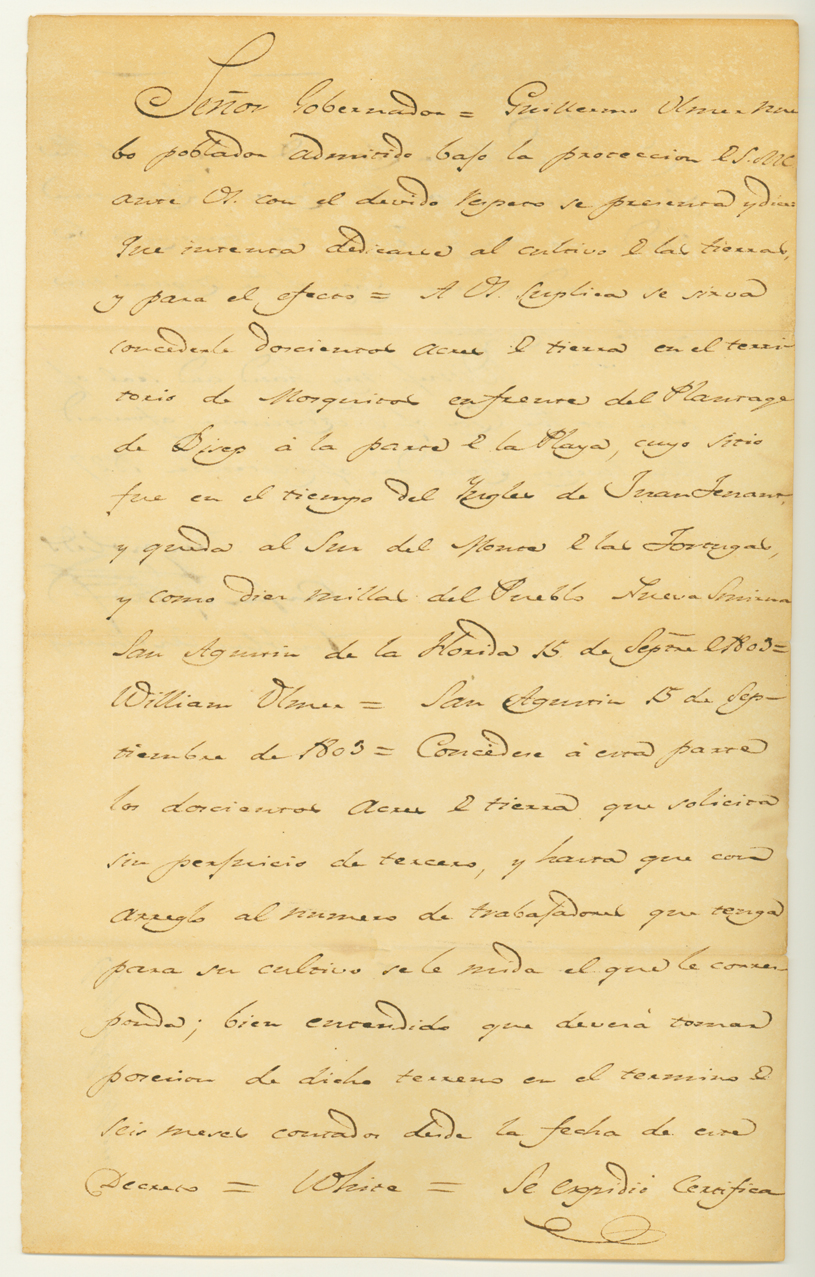 Señor Gobernador = Guillermo Ulmer nue
bo poblador admitido bajo la proteccion de S. M. C.
ante VS. con el devido respeto se presenta y dice:
Que intenta dedicarse al cultivo de las tierras,
y para el efecto = A VS. suplica se sirva
concederle doscientos acres de tierra en el terri-
torio de Mosquitos enfrente del Plantage
de Bisep á la parte de la Playa, cuyo sitio
fue en el tiempo del Yngles de Juan Tenant,
y queda al Sur del Monte de las Tortugas,
y como diez millas del Pueblo Nueva Smirna
San Agustin de la Florida 15 de Septre de 1803 =
William Ulmer = San Agustin 15 de Sep-
tiembre de 1803 = Concedese á esta parte
los doscientos acres de tierra que solicita
sin perjuicio de tercero, y hasta que con
arreglo al numero de trabajadores que tenga
para su cultivo se le mida el que le corres
ponda; bien entendido que deverá tomar
posesion de dicho terreno en el termino de
seis meses contados desde la fecha de este
Decreto = White = Se expidió Certifica